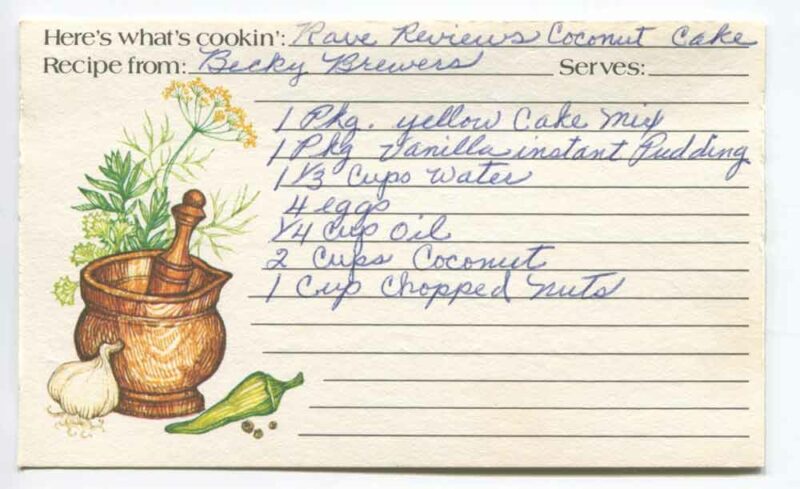 Here's what's cookin': Rave Reviews Coconut Cake
Recipe from: Becky Brewers Serves:
1 Pkg. yellow Cake mix
1 Pkg Vanilla instant Pudding
1 1/3 Cups Water
4 eggs
1/4 Cup Oil
2 Cups Coconut
1 Cup Chopped Nuts